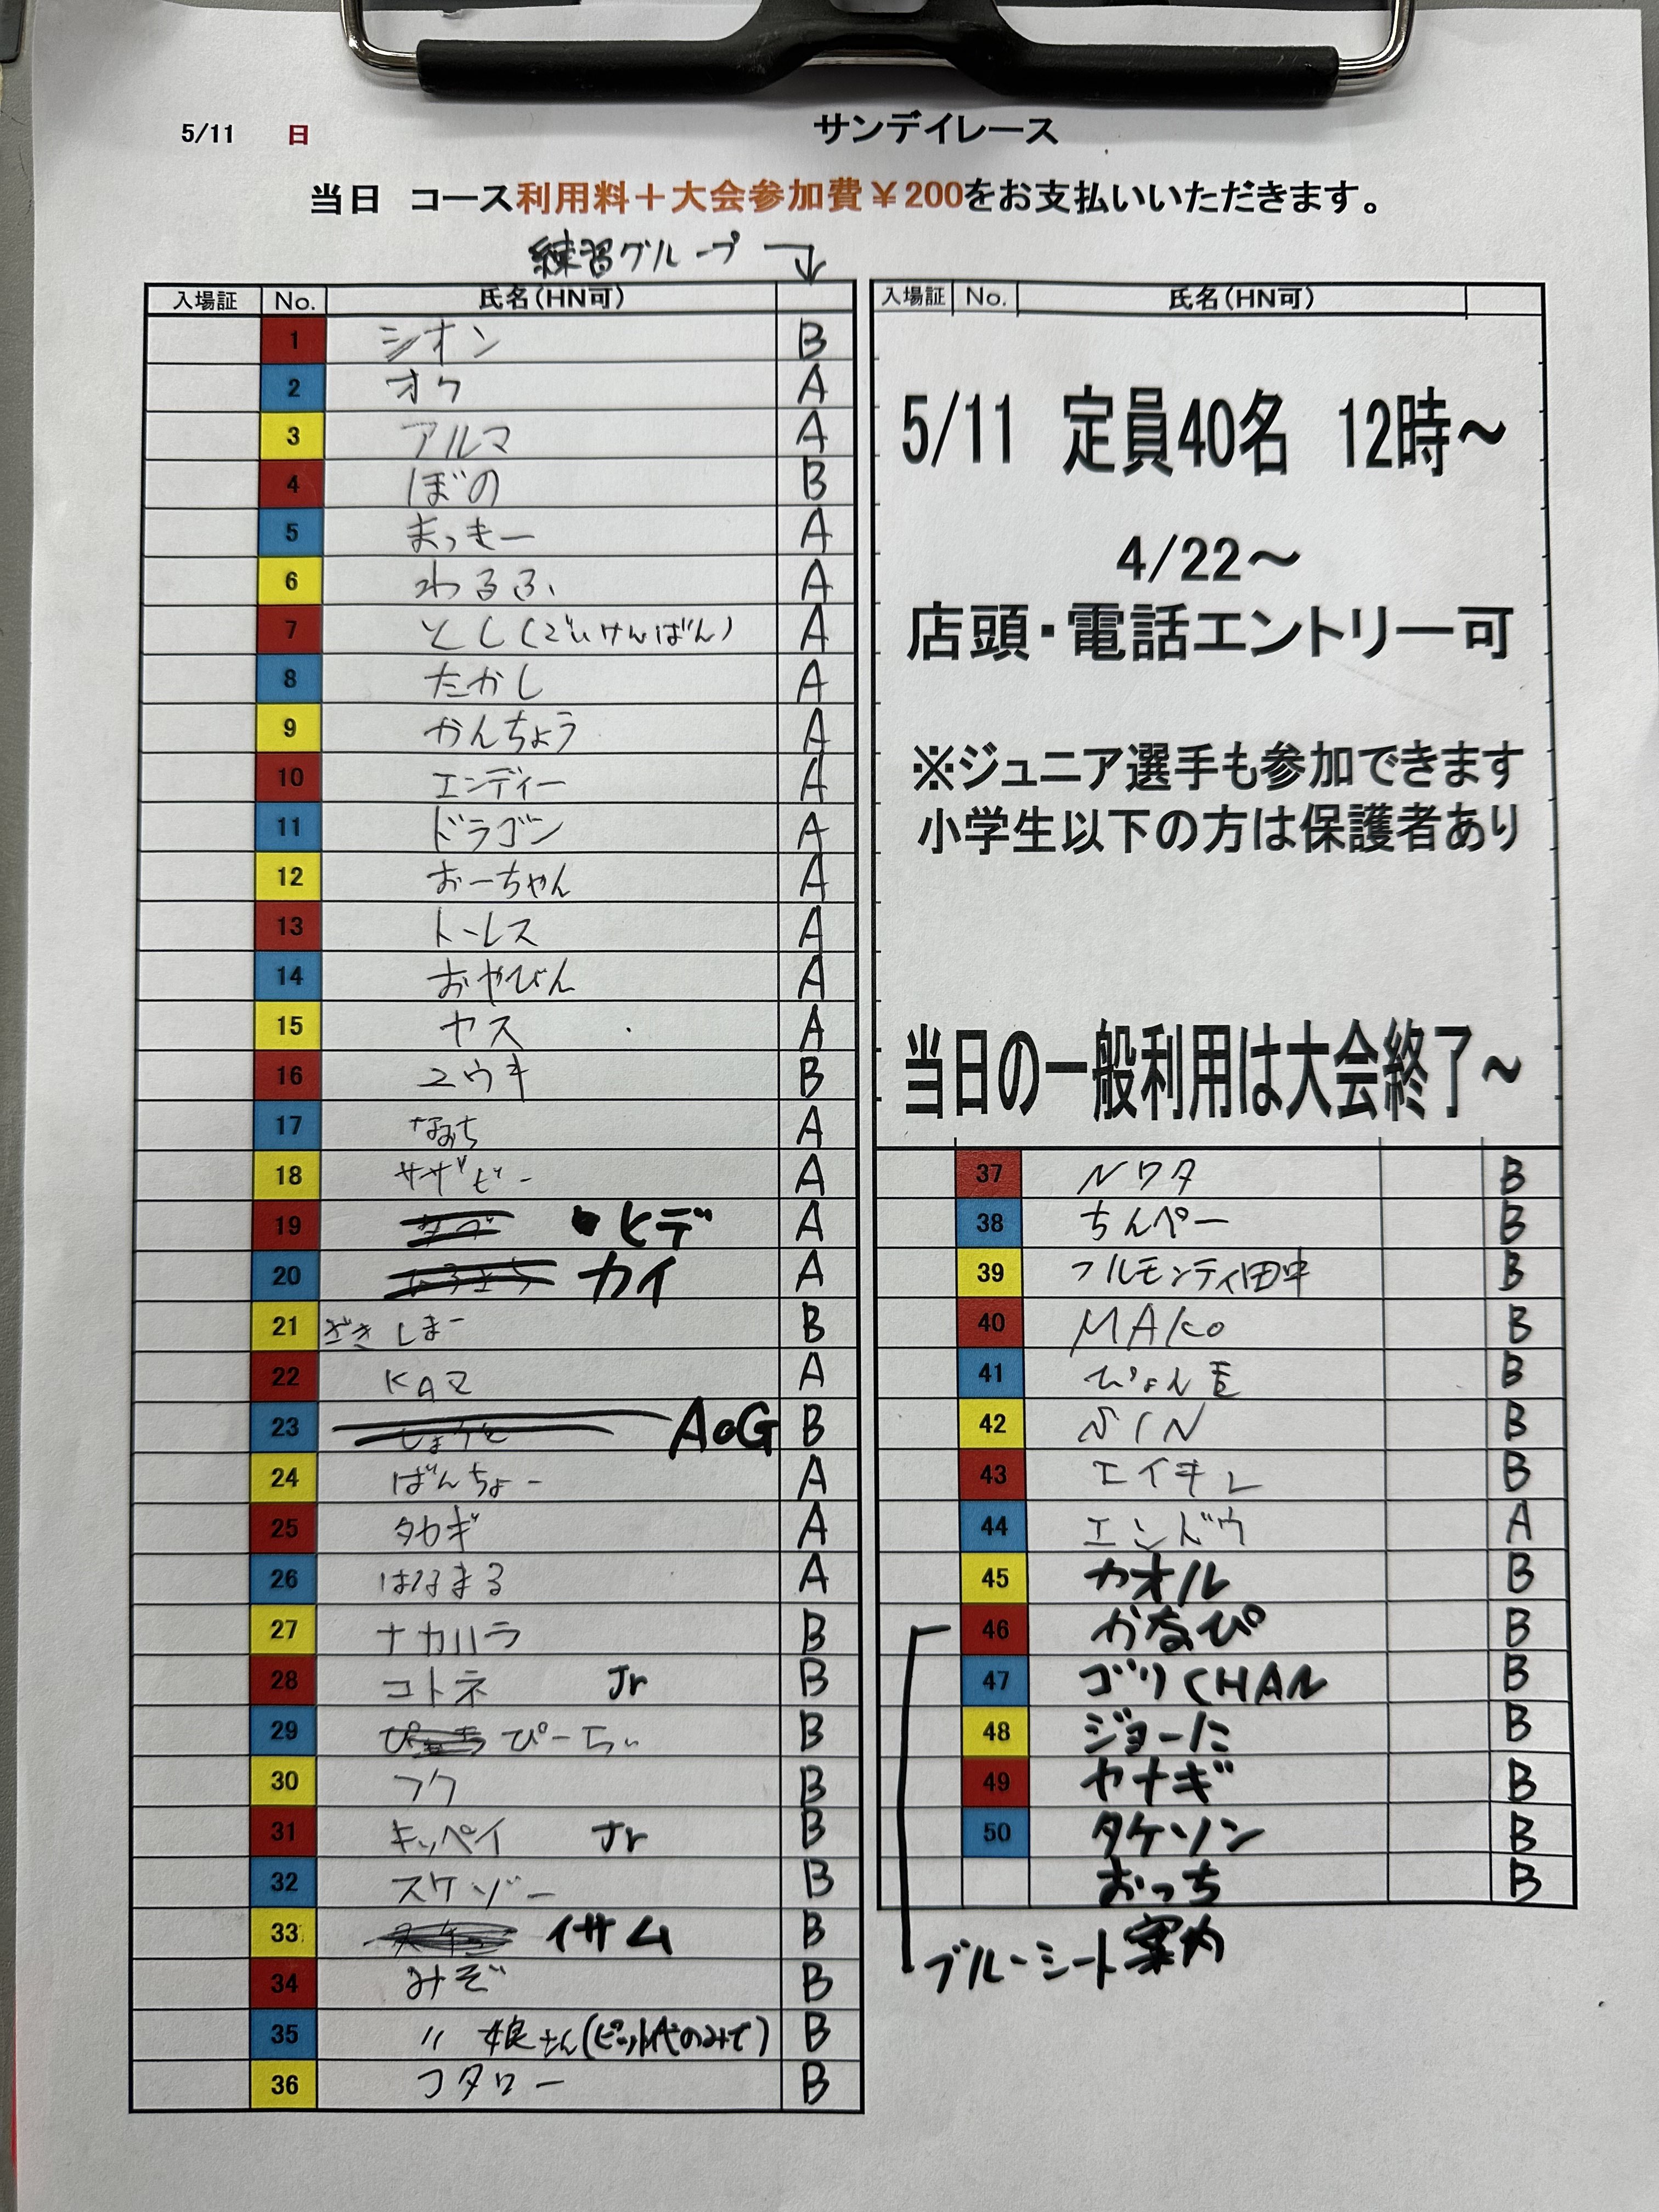 5/11 日 サンデイレース
当日 コース利用料＋大会参加費￥200をお支払いいただきます。
練習グループ
入場証 No. 氏名(HN可)
1 シオン B
2 オク A
3 アルマ A
4 ぼの B
5 まっきー A
6 わるふ A
7 とし(ごいけんばん) A
8 たかし A
9 かんちょう A
10 エンディー A
11 ドラゴン A
12 おーちゃん A
13 トーレス A
14 おやびん A
15 ヤス A
16 ユウキ B
17 なおち A
18 サザビー A
19 ヒデ A
20 カイ A
21 ざきしまー B
22 KAZ A
23 AoG B
24 ばんちょー A
25 タカギ A
26 はなまる A
27 ナカハラ B
28 コトネ Jr B
29 ぴーちぃ B
30 フク B
31 キッペイ Jr B
32 スケゾー B
33 イサム B
34 みぞ B
35 〃 娘さん(ピット代のみで) B
36 コタロー B
入場証 No. 氏名(HN可)
5/11 定員40名 12時～
4/22～
店頭・電話エントリー可
※ジュニア選手も参加できます
小学生以下の方は保護者あり
当日の一般利用は大会終了～
37 ノワタ B
38 ちんペー B
39 フルモンティ田中 B
40 MAKO B
41 B
42 SIN B
43 エイキし B
44 エンドウ A
45 カオル B
46 かなぴ B
47 ゴリCHAN B
48 ジョーに B
49 ヤナギ B
50 タケソン B
おっち B
ブルーシート案内